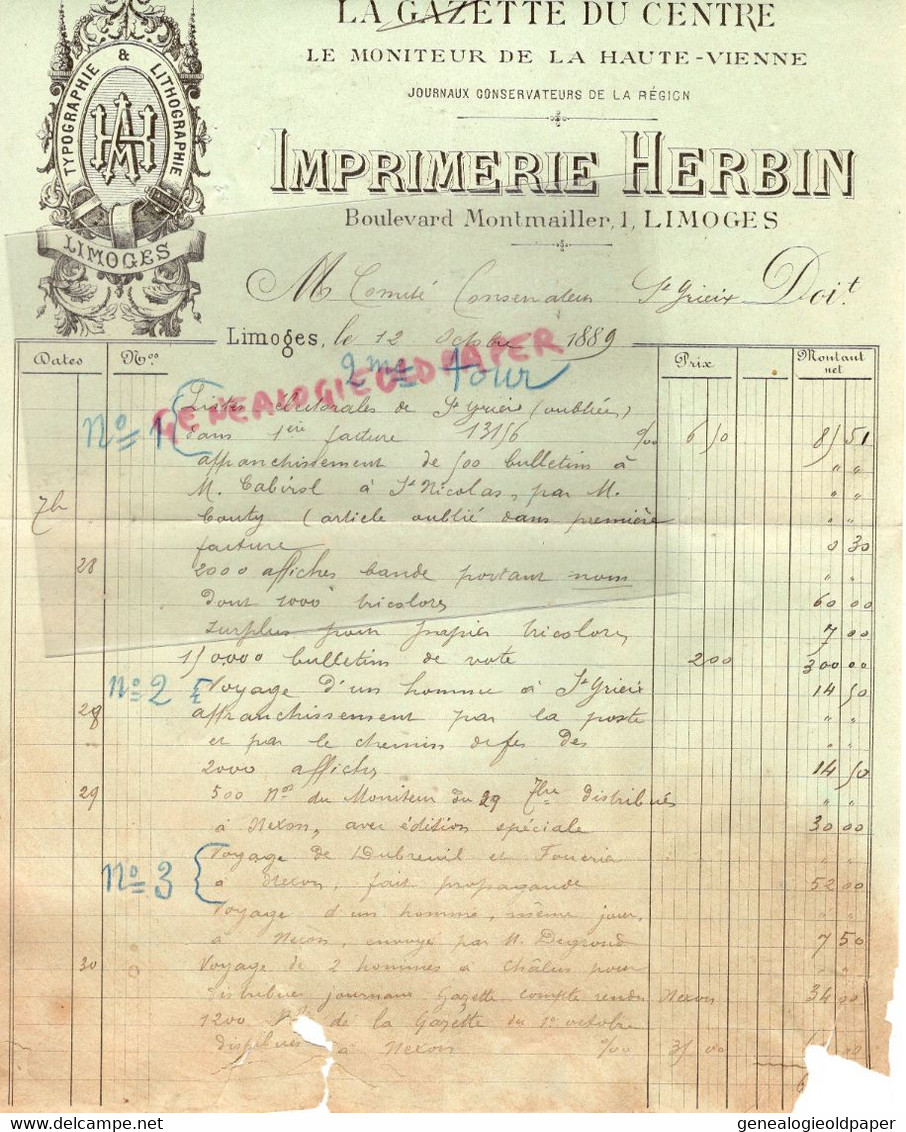 LA GAZETTE DU CENTRE
LE MONITEUR DE LA HAUTE-VIENNE
JOURNAUX CONSERVATEURS DE LA RÉGION
TYPOGRAPHIE & LITHOGRAPHIE
LIMOGES
IMPRIMERIE HERBIN
Boulevard Montmailler, 1, LIMOGES
M Comité Conservateur St Yrieix Doit.
Limoges, le 12 Octobre 1889
GENEALOGIEOLDPAPER
Dates Nos Prix Montant net
2me tour
No 1 Listes électorales de St Yrieix (oubliées)
dans 1ère facture 13156 %00 6 50 85 51
affranchissement de 500 bulletins à " "
M. Cabirol à St Nicolas, par M. " "
7b Couty (article oublié dans première
facture 0 30
28 2000 affiches bande portant nom " "
dont 1000 tricolores 60 00
surplus pour papier tricolore 7 00
150,000 bulletins de vote 2 00 300 00
No 2 Voyage d'un homme à St Yrieix 14 50
28 affranchissement par la poste " "
et par le chemin de fer des " "
2000 affiches 14 50
29 500 Nos du Moniteur du 29 7bre distribués " "
à Nexon, avec édition spéciale 30 00
No 3 Voyage de Dubreuil et "
à Nexon, fait propagande 52 00
Voyage d'un homme, même jour, " "
à Nexon, envoyé par M. 7 50
30 Voyage de 2 hommes à Châlus pour "
distribuer journaux Gazette compte rendu Nexon 34 00
1200 Nos de la Gazette du 1er octobre
distribués à Nexon %00 35 00
genealogieoldpaper